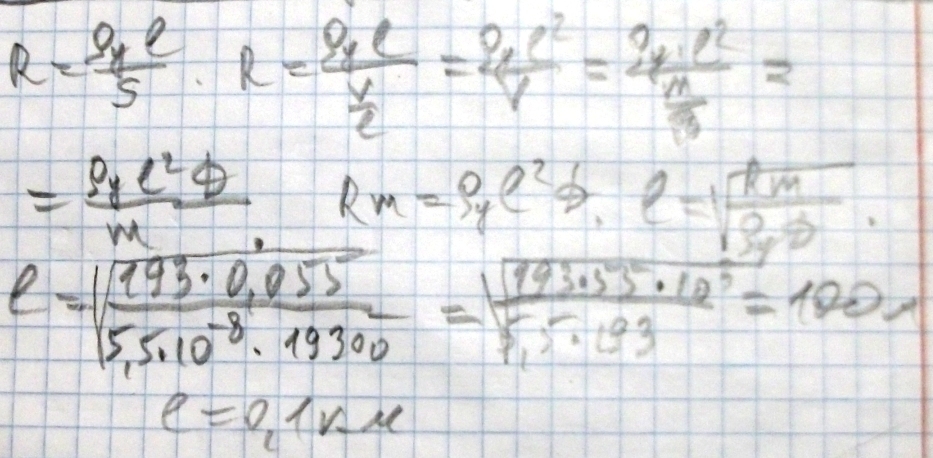 R = ρу l / S . R = ρу l / (V/l) = ρу l² / V = ρу · l² / (m/ф) =
= ρу l² ф / m Rm = ρу l² ф. l = √(Rm / ρу ф) .
l = √(193 · 0,055 / 5,5 · 10⁻⁸ · 19300) = √(193 · 55 · 10³ / 5,5 · 193) = 100 м
l = 0,1 км